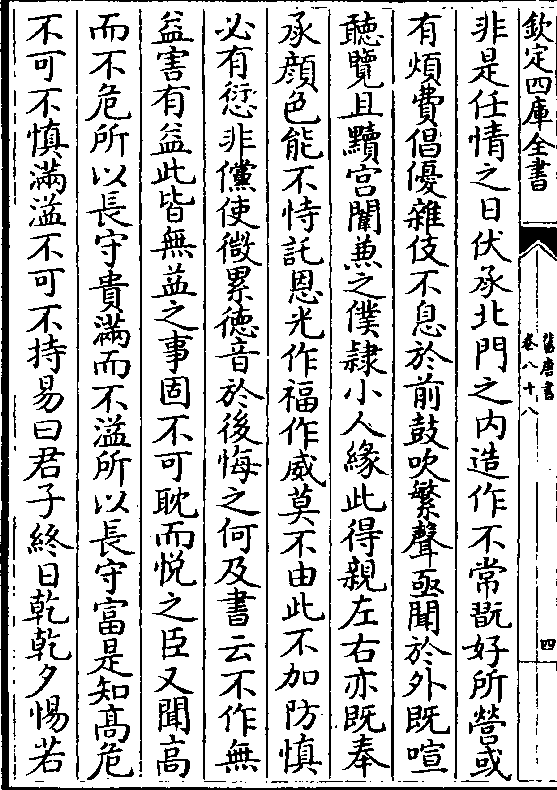 欽定四庫全書
舊唐書
卷八十八
四
非是任情之日伏承北門之内造作不常翫好所營或
有煩費倡優雜伎不息於前鼓吹繁聲亟聞於外既喧
聽覽且黷宫闈兼之僕隷小人緣此得親左右亦既奉
承顔色能不恃託恩光作福作威莫不由此不加防慎
必有愆非儻使微累德音於後悔之何及書云不作無
益害有益此皆無益之事固不可耽而悦之臣又聞高
而不危所以長守貴滿而不溢所以長守富是知高危
不可不慎滿溢不可不持易曰君子終日乾乾夕惕若